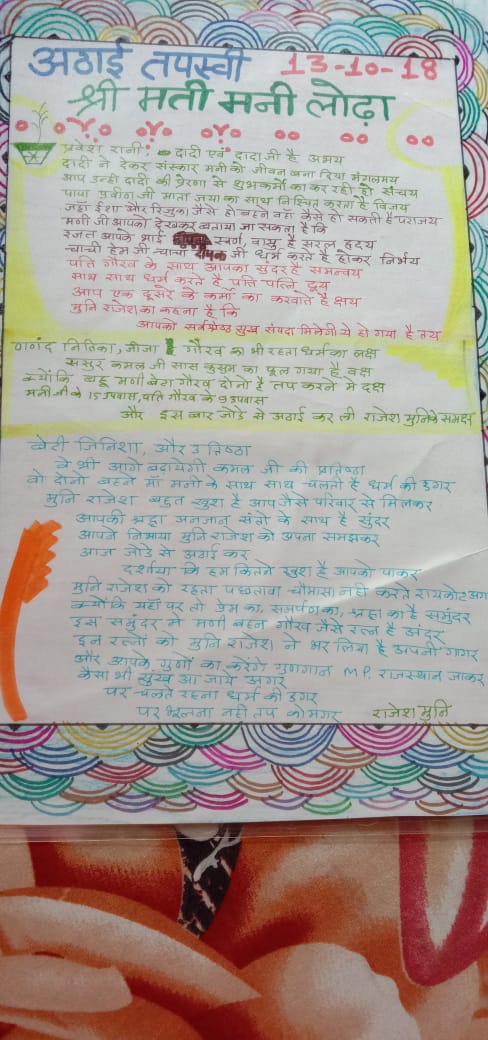 अठाई तपस्वी 13-10-18
श्री मती मनी लोढ़ा
प्रवेश रानी, दादी एवं दादा जी है अभय
दादी ने देकर संस्कार मनी को जीवन बना दिया मंगलमय
आप उन्हीं दादी की प्रेरणा से शुभकर्मो का कर रही हो संचय
पापा प्रवीन जी माता जया का साथ निश्चित करता है विजय
जहाँ ईशा और रिजुल जैसे हो बहन वहाँ कैसे हो सकती है पराजय
मनी जी आपको देखकर बताया जा सकता है कि
रजत आपके भाई स्वर्ण, वासु है सरल हृदय
चाची हेम जी चाचा जी धर्म करते है होकर निर्भय
पति गौरव के साथ आपका सुंदर है समन्वय
साथ साथ धर्म करते है पति पत्नि द्वय
आप एक दूसरे के कर्मो का करवाते है क्षय
मुनि राजेश का कहना है कि
आपको सर्वश्रेष्ठ सुख संपदा मिलेगी ये हो गया है तय
नणंद नितिका, जीजा गौरव का भी रहता धर्म का लक्ष
ससुर कमल जी सास कुसुम का फूल गया है वक्ष
क्योंकि बहू मणी बेटा गौरव दोनो है तप करने में दक्ष
मनी जी के 15 उपवास, पति गौरव के 9 उपवास
और इस बार जोडे से अठाई कर ली राजेश मुनि के समक्ष
बेटी जिनिशा, और उतिष्ठा
ये भी आगे बढायेगी कमल जी की प्रतिष्ठा
वो दोनो बहने माँ मनी के साथ साथ चलती है धर्म की डगर
मुनि राजेश बहुत खुश है आप जैसे परिवार से मिलकर
आपकी श्रद्धा अनजान संतो के साथ है सुंदर
आपने निभाया मुनि राजेश को अपना समझकर
आज जोडे से अठाई कर
दर्शाया कि हम कितने खुश है आपको पाकर
मुनि राजेश को रहता पछतावा चौमासा नही करते रायकोट अगर
क्योंकि यहाँ पर तो प्रेम का, समर्पण का, श्रद्धा का है समुंदर
इस समुंदर में मणी बहन गौरव जैसे रत्न है अंदर
इन रत्नो को मुनि राजेश ने भर लिया है अपनी गागर
और आपके गुणों का करेंगे गुणगान M.P. राजस्थान जाकर
कैसा भी सुख आ जाये अगर
पर चलते रहना धर्म की डगर
पर भूलना नही तप को मगर राजेश मुनि